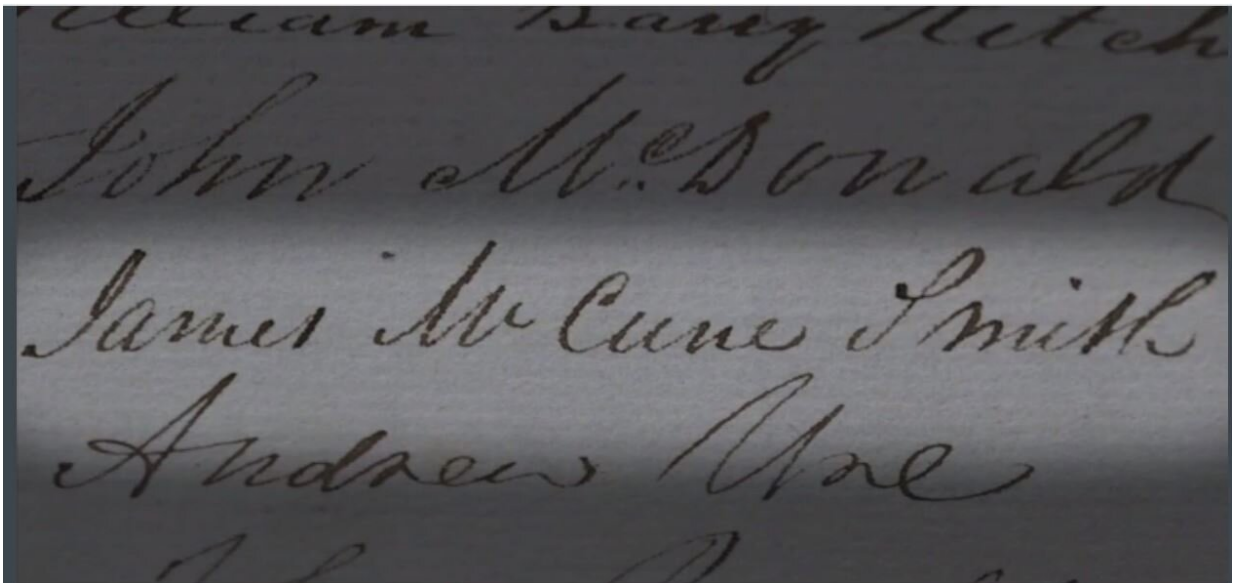 William Barry
John McDonald
James McCune Smith
Andrew Ure